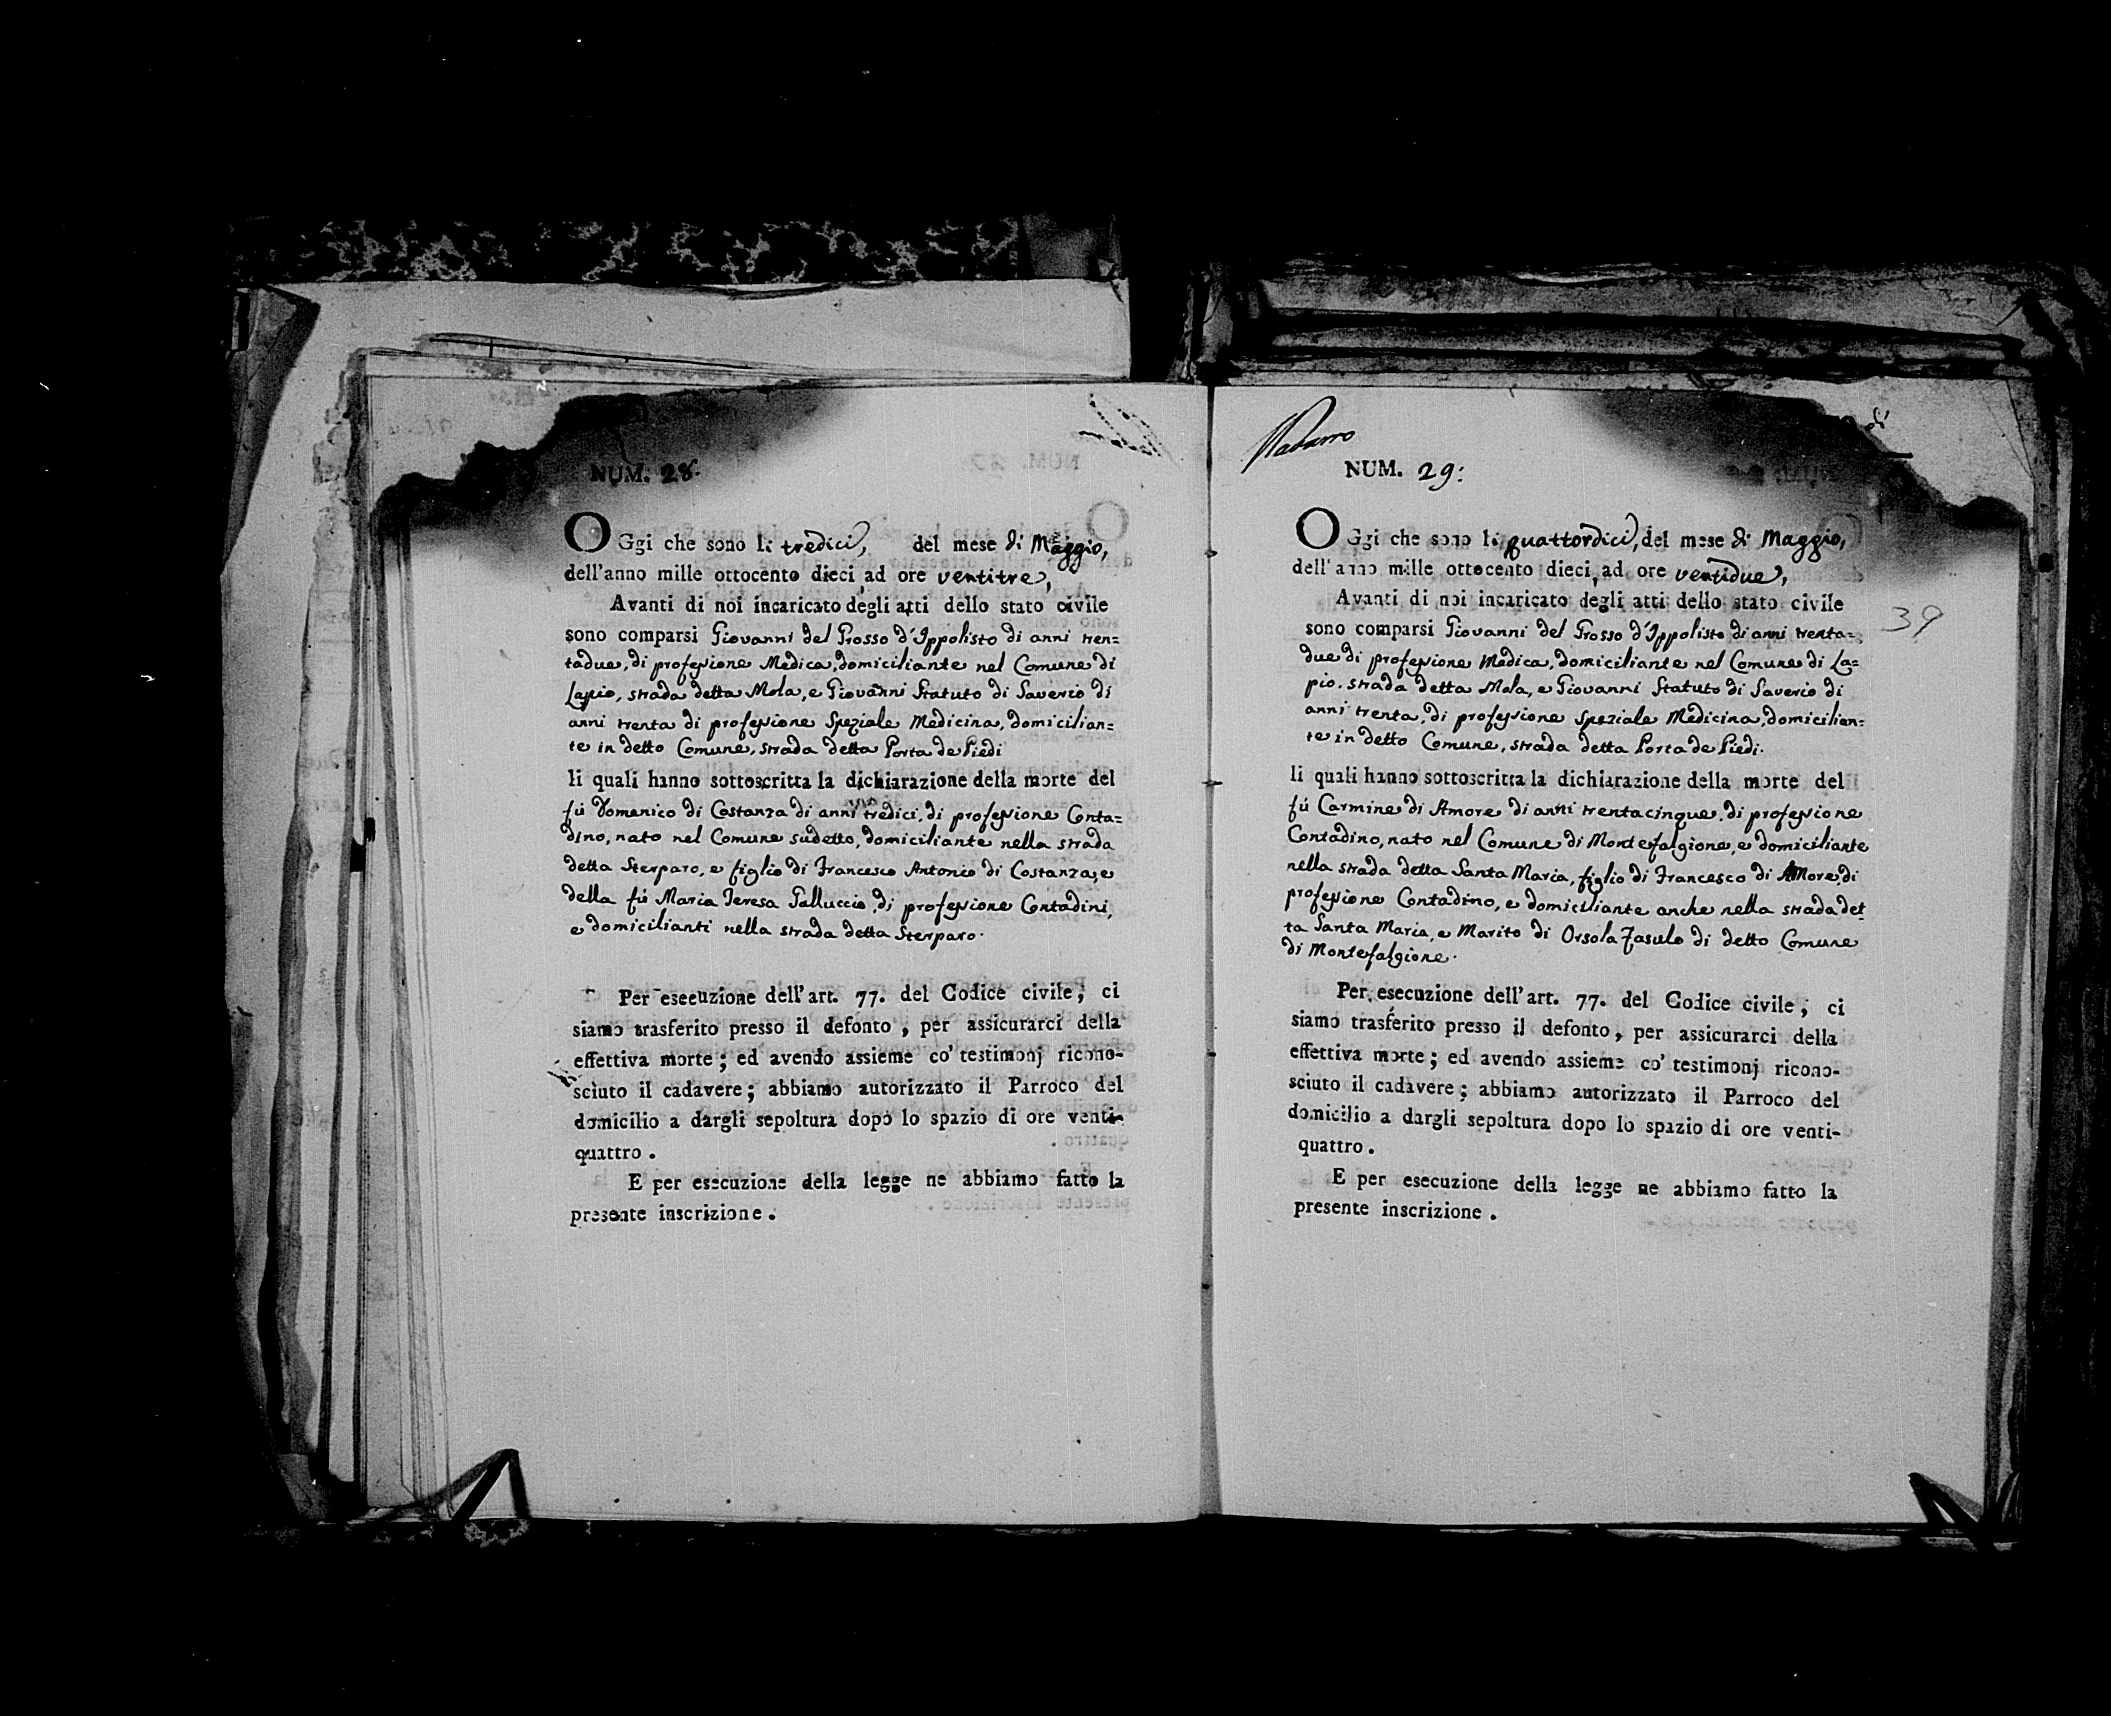 NUM. 28.
OGgi che sono li tredici, del mese di Maggio,
dell'anno mille ottocento dieci, ad ore ventitre,
Avanti di noi incaricato degli atti dello stato civile
sono comparsi Giovanni del Grosso d'Ippolisto di anni tren=
tadue, di professione Medica, domiciliante nel Comune di
Lapio, strada detta Mola, e Giovanni Statuto di Saverio di
anni trenta di professione Speziale Medicina, domicilian=
te in detto Comune, strada detta Porta de Piedi
li quali hanno sottoscritta la dichiarazione della morte del
fù Domenico di Costanza di anni tredici, di professione Conta=
dino, nato nel Comune sudetto, domiciliante nella strada
detta Sterparo, e figlio di Francesco Antonio di Costanza, e
della fù Maria Teresa Galluccio, di professione Contadini,
e domicilianti nella strada detta Sterparo.
Per esecuzione dell'art. 77. del Codice civile, ci
siamo trasferito presso il defonto, per assicurarci della
effettiva morte; ed avendo assieme co' testimonj ricono-
sciuto il cadavere; abbiamo autorizzato il Parroco del
domicilio a dargli sepoltura dopo lo spazio di ore venti-
quattro.
E per esecuzione della legge ne abbiamo fatto la
presente inscrizione.
NUM. 29:
OGgi che sono li quattordici, del mese di Maggio,
dell'anno mille ottocento dieci, ad ore ventidue,
Avanti di noi incaricato degli atti dello stato civile
39
sono comparsi Giovanni del Grosso d'Ippolisto di anni trenta=
due di professione Medica, domiciliante nel Comune di La=
pio. strada detta Mola, e Giovanni Statuto di Saverio di
anni trenta, di professione Speziale Medicina, domicilian=
te in detto Comune, strada detta Porta de Piedi.
li quali hanno sottoscritta la dichiarazione della morte del
fù Carmine di Amore di anni trentacinque, di professione
Contadino, nato nel Comune di Montefalgione, e domiciliante
nella strada detta Santa Maria, figlio di Francesco di Amore, di
professione Contadino, e domiciliante anche nella strada det
ta Santa Maria, e Marito di Orsola Fasulo di detto Comune
di Montefalgione.
Per esecuzione dell'art. 77. del Codice civile, ci
siamo trasferito presso il defonto, per assicurarci della
effettiva morte; ed avendo assieme co' testimonj ricono-
sciuto il cadavere; abbiamo autorizzato il Parroco del
domicilio a dargli sepoltura dopo lo spazio di ore venti-
quattro.
E per esecuzione della legge ne abbiamo fatto la
presente inscrizione.